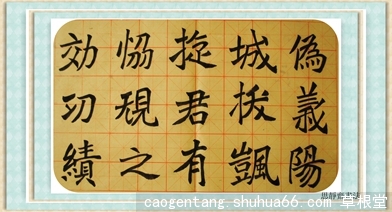 偽義陽
城拔颽
旋君有
恊規之
効功績
caogentang.shuhua66.com 草根堂